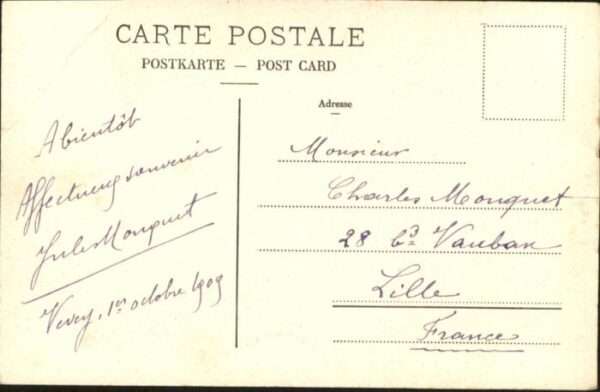 CARTE POSTALE
POSTKARTE — POST CARD
Adresse
A bientôt
Affectueux souvenir
Jules Monquet
Vevey, 1er octobre 1909
Monsieur
Charles Monquet
28 Bd Vauban
Lille
France